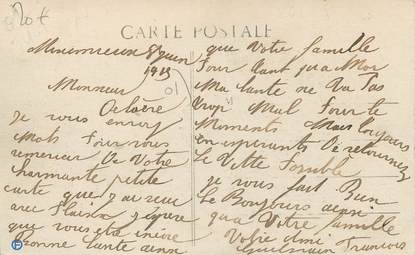 20 €
CARTE POSTALE
8 juin
1915
Monsieur
Delaère
Je vous envoy
Mots Pour vous
remercier De Votre
charmante petite
carte que j'ai reçu
avec Plaisir j'espère
que vous ete encore
Bonne Sante ainsi
que Votre famille
Pour tant qua Moi
Ma Sante ne Va Pas
trop Mal Pour te
Moments Mais toujours
en espirants De retourner
Le Vitte Possible
je vous fait Bien
Le Bonjours ainsi
qua Votre famille
Votre ami
Francois